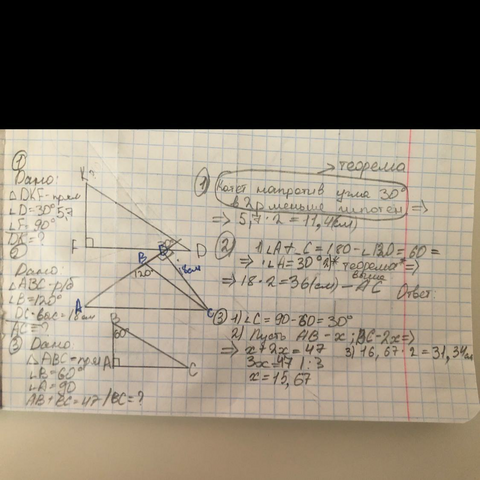 ①
Дано:
△ DKF-прям
∠D=30° 5,7
∠F=90°
DK=?
②
Дано:
∠ABC-р/б
∠B=120°
DC-выс=18см
AC=?
③ Дано:
△ ABC=прям
∠B=60°
∠A=90
AB+BC=47/BC=?
K
F
D
B
D
120°
18см
A
C
B
60°
A
C
→ теорема
① Катет напротив угла 30°
в 2р меньше гипотен ⇒
⇒ 5,7·2=11,4(см)
② 1.∠A+∠C=180-∠120=60=
⇒ ∠A=30° 2)* теорема* ⇒
выше
⇒ 18·2=36(см)-AC Ответ
③ 1) ∠C=90-60=30°
2) Пусть AB-x; BC-2x⇒
⇒ x+2x=47 3) 16,67·2=31,34см
3x=47 |:3
x=15,67